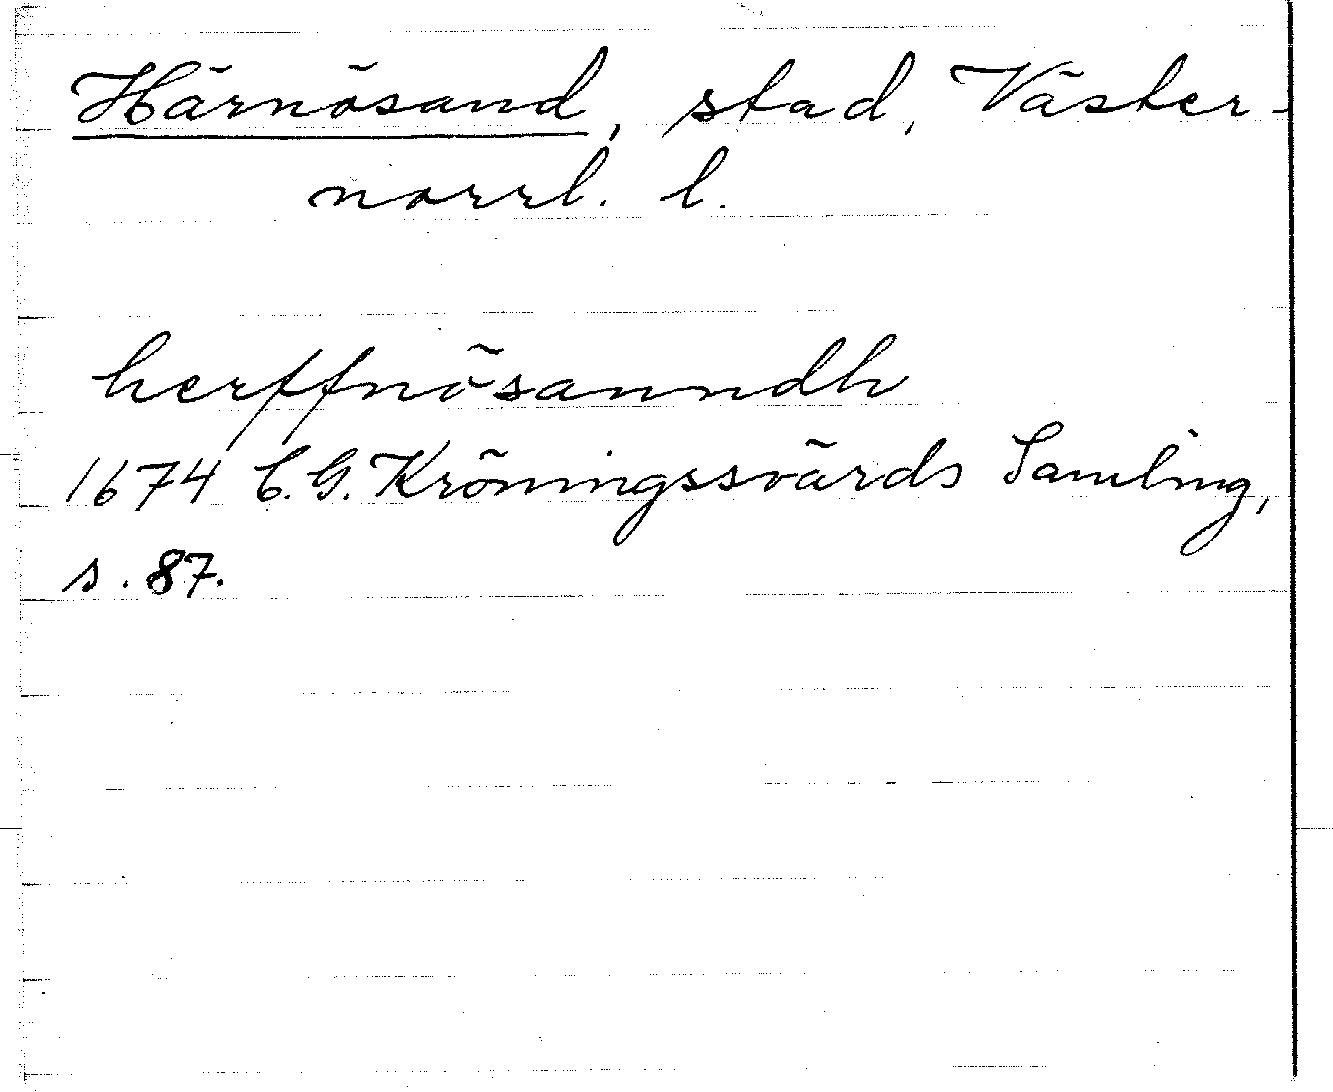 Härnösand, stad, Väster-
norrl. l.
herffnösanndh
1674 C.G. Kröningssvärds Samling,
s. 87.